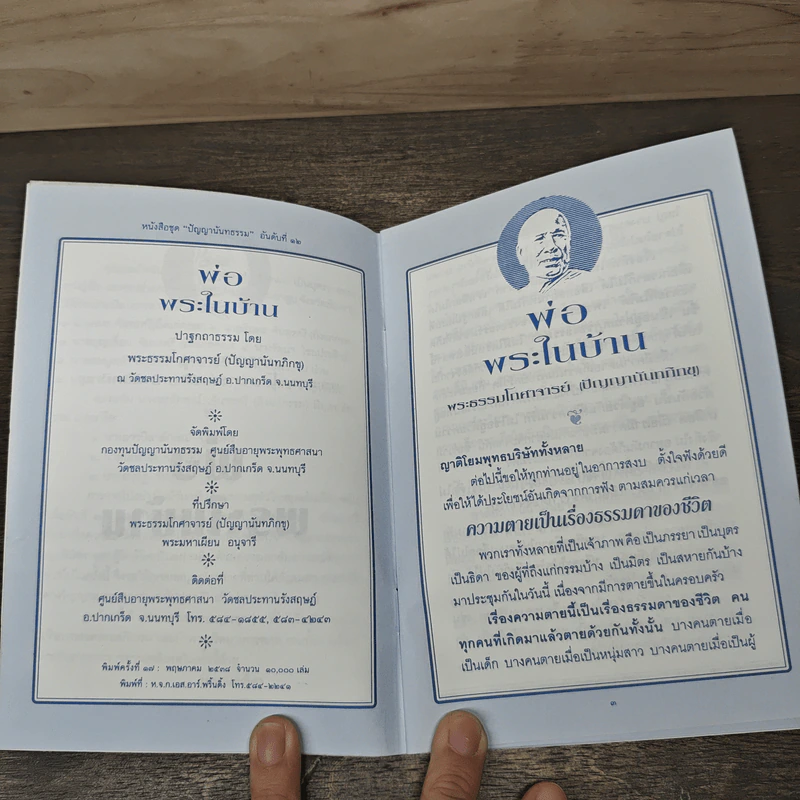 หนังสือชุด "ปัญญานันทธรรม" อันดับที่ ๑๒
พ่อ
พระในบ้าน
ปาฐกถาธรรม โดย
พระธรรมโกศาจารย์ (ปัญญานันทภิกขุ)
ณ วัดชลประทานรังสฤษฎ์ อ.ปากเกร็ด จ.นนทบุรี
จัดพิมพ์โดย
กองทุนปัญญานันทธรรม ศูนย์สืบอายุพระพุทธศาสนา
วัดชลประทานรังสฤษฎ์ อ.ปากเกร็ด จ.นนทบุรี
ที่ปรึกษา
พระธรรมโกศาจารย์ (ปัญญานันทภิกขุ)
พระมหาเผียน อนุจารี
ติดต่อที่
ศูนย์สืบอายุพระพุทธศาสนา วัดชลประทานรังสฤษฎ์
อ.ปากเกร็ด จ.นนทบุรี โทร. ๕๘๔-๑๘๕๕, ๕๘๓-๔๒๔๓
พิมพ์ครั้งที่ ๑๗ : พฤษภาคม ๒๕๓๘ จำนวน ๑๐,๐๐๐ เล่ม
พิมพ์ที่ : ห.จ.ก.เอส.อาร์.พริ้นติ้ง โทร.๕๘๔-๒๒๔๑
พ่อ
พระในบ้าน
พระธรรมโกศาจารย์ (ปัญญานันทภิกขุ)
ญาติโยมพุทธบริษัททั้งหลาย
ต่อไปนี้ขอให้ทุกท่านอยู่ในอาการสงบ ตั้งใจฟังด้วยดี
เพื่อให้ได้ประโยชน์อันเกิดจากการฟัง ตามสมควรแก่เวลา
ความตายเป็นเรื่องธรรมดาของชีวิต
พวกเราทั้งหลายที่เป็นเจ้าภาพ คือ เป็นภรรยา เป็นบุตร
เป็นธิดา ของผู้ที่ถึงแก่กรรมบ้าง เป็นมิตร เป็นสหายกันบ้าง
มาประชุมกันในวันนี้ เนื่องจากมีการตายขึ้นในครอบครัว
เรื่องความตายนี้เป็นเรื่องธรรมดาของชีวิต คน
ทุกคนที่เกิดมาแล้วตายด้วยกันทั้งนั้น บางคนตายเมื่อ
เป็นเด็ก บางคนตายเมื่อเป็นหนุ่มสาว บางคนตายเมื่อเป็นผู้
๓